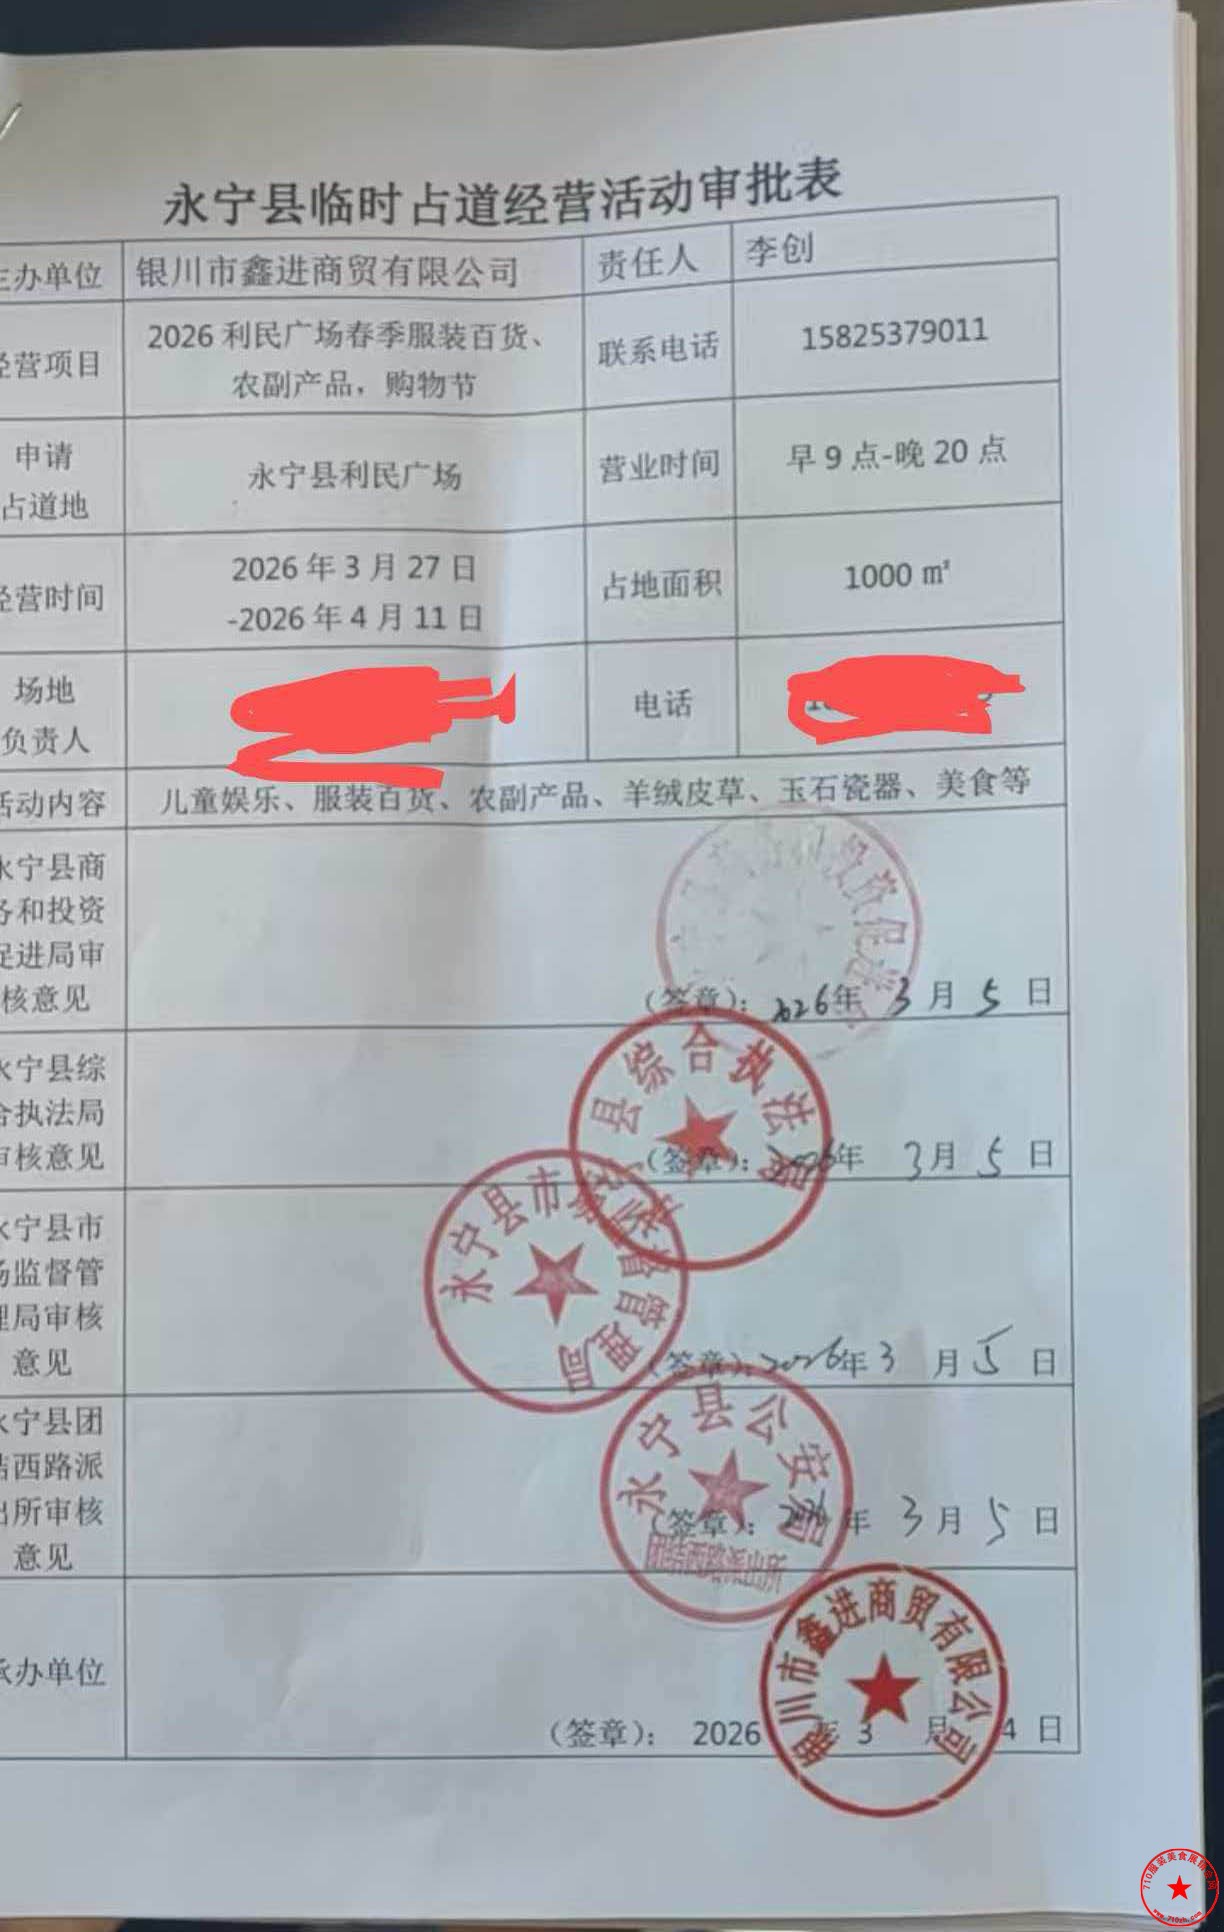 永宁县临时占道经营活动审批表
主办单位 银川市鑫进商贸有限公司 责任人 李创
经营项目 2026利民广场春季服装百货、
农副产品，购物节 联系电话 15825379011
申请
占道地 永宁县利民广场 营业时间 早9点-晚20点
经营时间 2026年3月27日
-2026年4月11日 占地面积 1000㎡
场地
负责人 电话
活动内容 儿童娱乐、服装百货、农副产品、羊绒皮草、玉石瓷器、美食等
永宁县商
务和投资
促进局审
核意见
投资促进
（签章）：2026年3月5日
永宁县综
合执法局
审核意见
县综合执法局
（签章）：2026年3月5日
永宁县市
场监督管
理局审核
意见
永宁县市场监督管理局
（签章）：2026年3月5日
永宁县团
结西路派
出所审核
意见
永宁县公安局
团结西路派出所
（签章）：年3月5日
承办单位
银川市鑫进商贸有限公司
（签章）：2026年3月4日
710服装美食展销会网
www.710zh.com